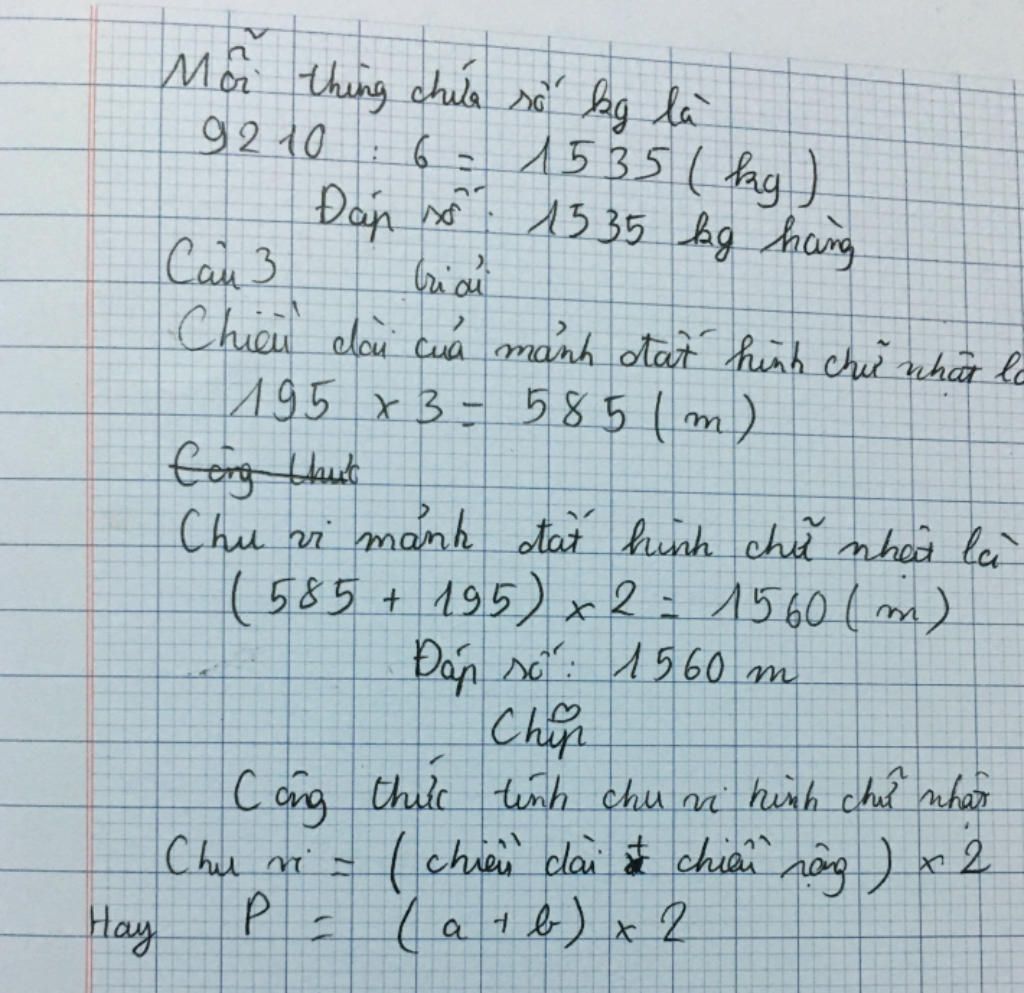 Mỗi thùng chứa số kg là
9210 : 6 = 1535 (kg)
Đáp số: 1535 kg hàng
Câu 3 Giải
Chiều dài của mảnh đất hình chữ nhật là
195 x 3 = 585 (m)
Công thức
Chu vi mảnh đất hình chữ nhật là
(585 + 195) x 2 = 1560 (m)
Đáp số: 1560 m
Chip
Công thức tính chu vi hình chữ nhật
Chu vi = (chiều dài + chiều rộng) x 2
Hay P = (a + b) x 2